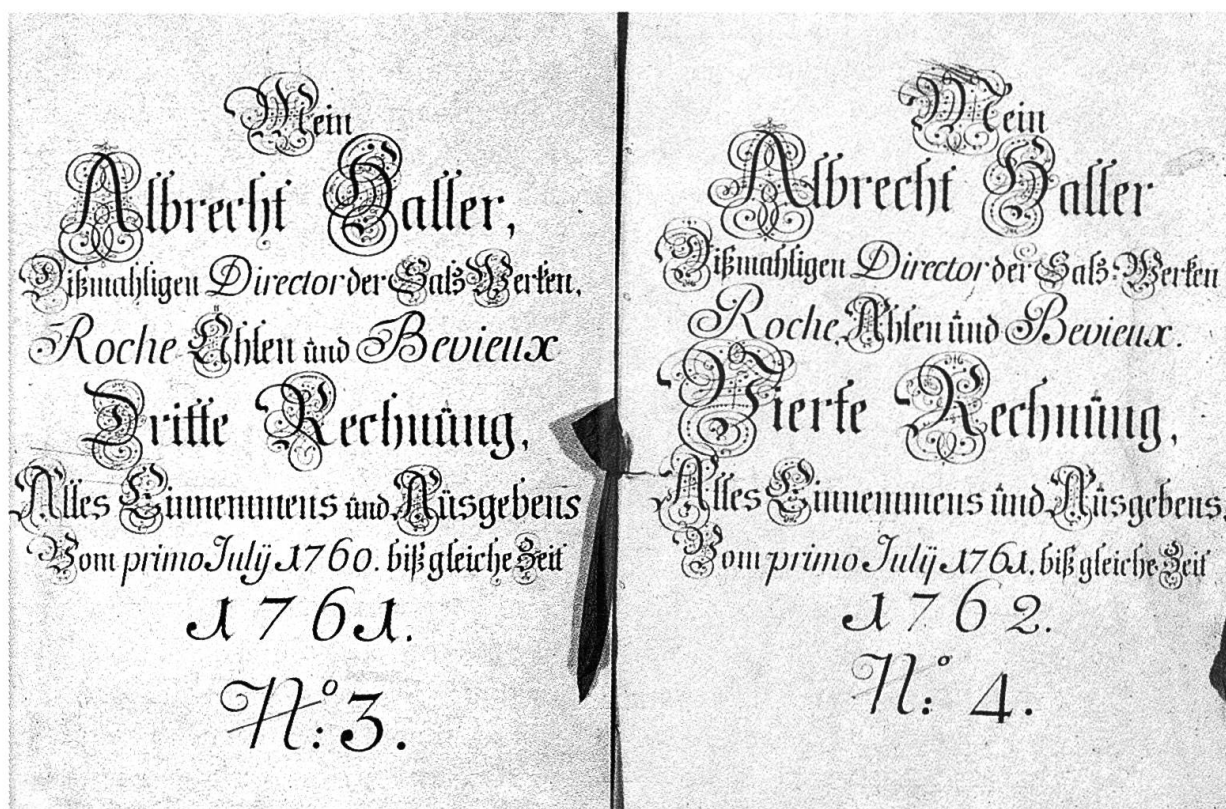 Mein
Albrecht Haller,
Dißmahligen Director der Saltz Werken,
Roche Ählen und Bevieux
Dritte Rechnüng,
Alles Einnemmens und Aüsgebens
Vom primo Julÿ 1760. biß gleiche Zeit
1761.
No: 3.
Mein
Albrecht Haller
Dißmahligen Director der Saltz-Werken
Roche, Ählen ünd Bevieux.
Vierte Rechnüng,
Alles Einnemmens ünd Aüsgebens,
Vom primo Julÿ 1761. biß gleiche Zeit
1762.
No: 4.